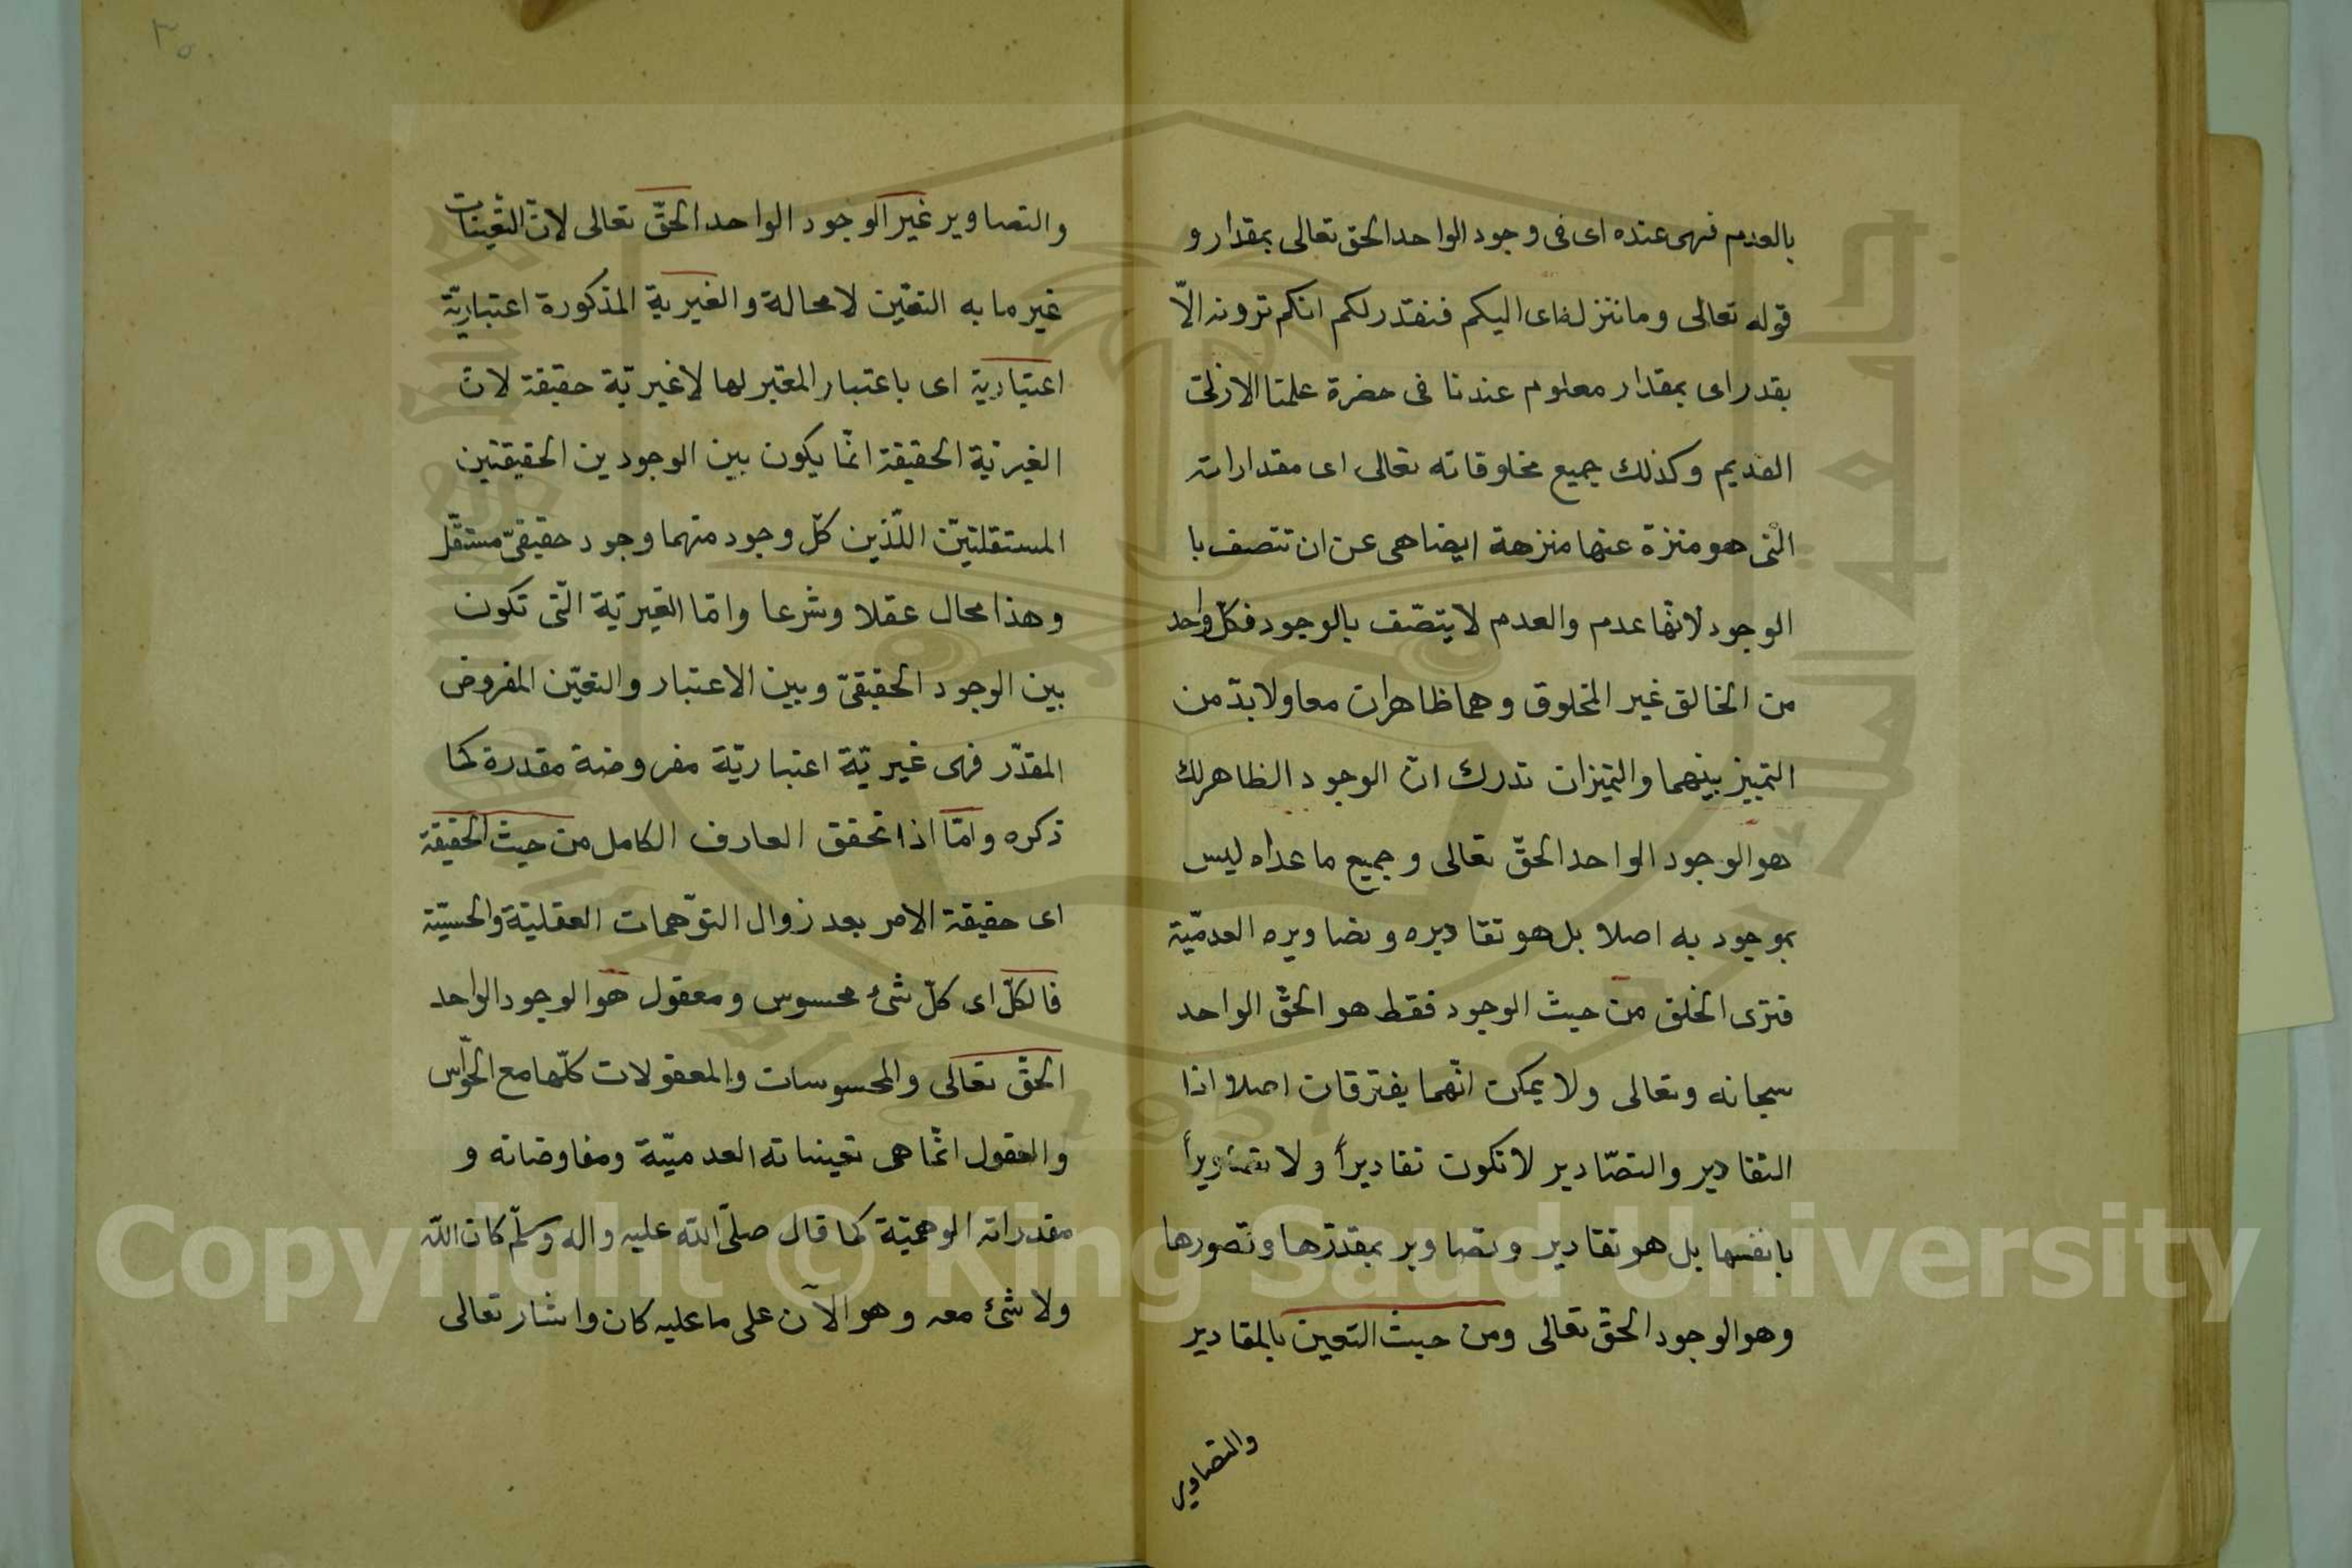 بالعدم فهى عنده اى فى وجود الواحد الحق تعالى بمقدار و
قوله تعالى وما ننزله اى اليكم فنقدر لكم انكم ترونه الّا
بقدر اى بمقدار معلوم عندنا فى حضرة علمنا الازلىّ
القديم وكذلك جميع مخلوقاته تعالى اى مقداراته
الّتى هو منزة عنها منزهة ايضا هى عن ان تتصف با
الوجود لانّها عدم والعدم لا يتصّف بالوجود فكلّ واحد
من الخالق غير المخلوق وهما ظاهران معا ولا بدّ من
التمييز بينهما والتميزان تدرك انّ الوجود الظاهر لك
هو الوجود الواحد الحقّ تعالى وجميع ما عداه ليس
بموجود به اصلا بل هو تقاديره وتصاويره العدميّة
فترى الخلق من حيث الوجود فقط هو الحقّ الواحد
سبحانه وتعالى ولا يمكن انّهما يفترقان اصلا اذا
التقادير والتصّادير لا تكون تقاديراً ولا تصاويراً
بانفسها بل هو تقادير وتصاوير بمقدّرها وتصورها
وهو الوجود الحقّ تعالى ومن حيث التعين بالمقادير
والتصاوير
والتصاوير غير الوجود الواحد الحقّ تعالى لانّ التعّينات
غير ما به التعّين لا محالة والغيرية المذكورة اعتباريّة
اعتبارية اى باعتبار المعتبر لها لا غيريّة حقيقة لانّ
الغيريّة الحقيقة انّما يكون بين الوجودين الحقيقتين
المستقلتيّن اللّذين كلّ وجود منهما وجود حقيقىّ مستقّل
وهذا محال عقلا وشرعا وامّا الغيريّة الّتى تكون
بين الوجود الحقيقىّ وبين الاعتبار والتعيّن المفروض
المقدّر فهى غيريّة اعتباريّة مفروضة مقدرة كما
ذكره وامّا اذا تحقق العارف الكامل من حيث الحقيقة
اى حقيقة الامر بعد زوال التوّهمات العقليّة والحسيّة
فالكلّ اى كلّ شئ محسوس ومعقول هو الوجود الواحد
الحقّ تعالى والمحسوسات والمعقولات كلّها مع الحوّاس
والعقول انّما هى تعيناته العدميّة ومفاوضاته و
مقدراته الوهميّة كما قال صلّى الله عليه واله وسلّم كان الله
ولا شئ معه وهو الآن على ما عليه كان واشار تعالى
Copyright © King Saud University
1957